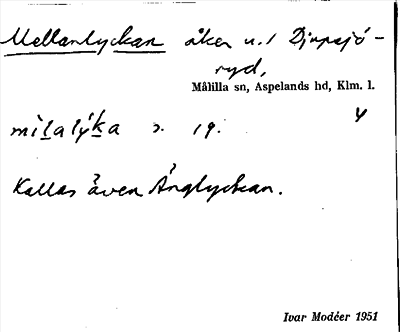 Mellanlyckan åker u. / Djupsjö-
ryd,
Målilla sn, Aspelands hd, Klm. l.
4
mìlalýka s. 19.
Kallas även Änglyckan.
Ivar Modéer 1951